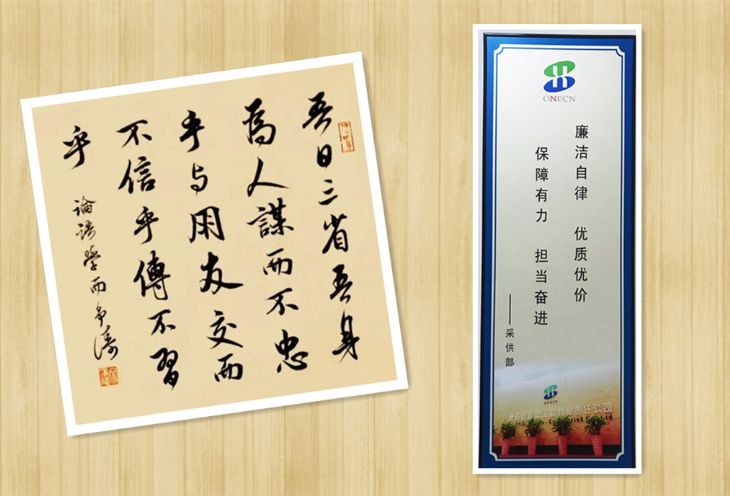 吾日三省吾身
為人謀而不忠
乎与朋友交而
不信乎傳不習
乎
論語學而
ONECN
廉洁自律 优质优价
保障有力 担当奋进
——采供部
ONECN